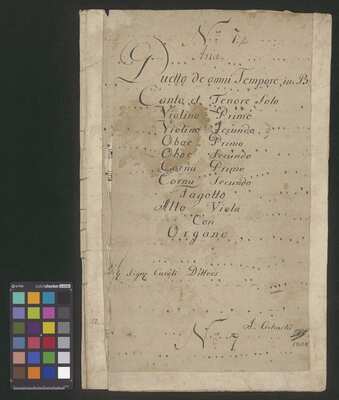 Aria
Duetto de omni Tempore, in B
Canto et Tenore Solo
Violino Primo
Violino Secundo
Oboe Primo
Oboe Secundo
Cornu Primo
Cornu Secundo
Fagotto
Alto Viola
Con
Organo
Sigre Carolo Ditters